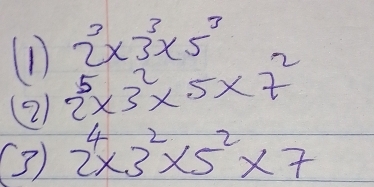 (1) 2³×3³×5³
(2) 2⁵×3²×5×7²
(3) 2⁴×3²×5²×7